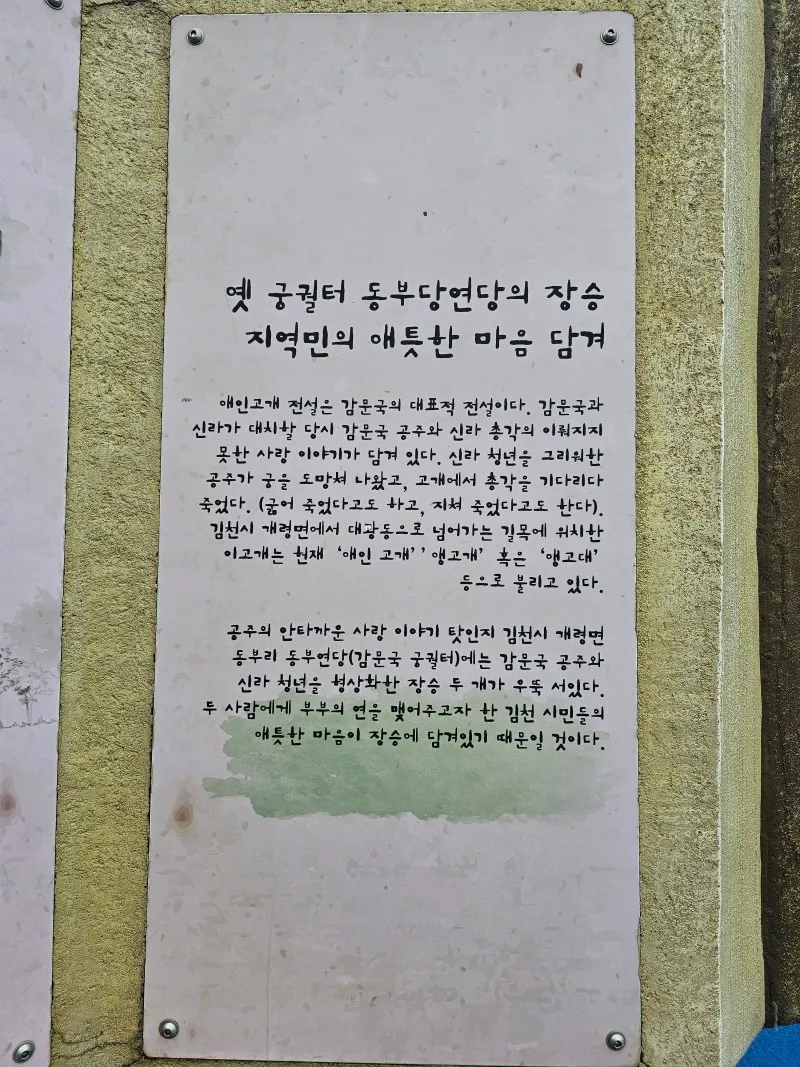 옛 궁궐터 동부당연당의 장승
지역민의 애틋한 마음 담겨
애인고개 전설은 감문국의 대표적 전설이다. 감문국과
신라가 대치할 당시 감문국 공주와 신라 총각의 이뤄지지
못한 사랑 이야기가 담겨 있다. 신라 청년을 그리워한
공주가 궁을 도망쳐 나왔고, 고개에서 총각을 기다리다
죽었다. (굶어 죽었다고도 하고, 지쳐 죽었다고도 한다).
김천시 개령면에서 대광동으로 넘어가는 길목에 위치한
이고개는 현재 ‘애인 고개’ ’앵고개’ 혹은 ‘앵고대’
등으로 불리고 있다.
공주의 안타까운 사랑 이야기 탓인지 김천시 개령면
동부리 동부연당(감문국 궁궐터)에는 감문국 공주와
신라 청년을 형상화한 장승 두 개가 우뚝 서있다.
두 사람에게 부부의 연을 맺어주고자 한 김천 시민들의
애틋한 마음이 장승에 담겨있기 때문일 것이다.